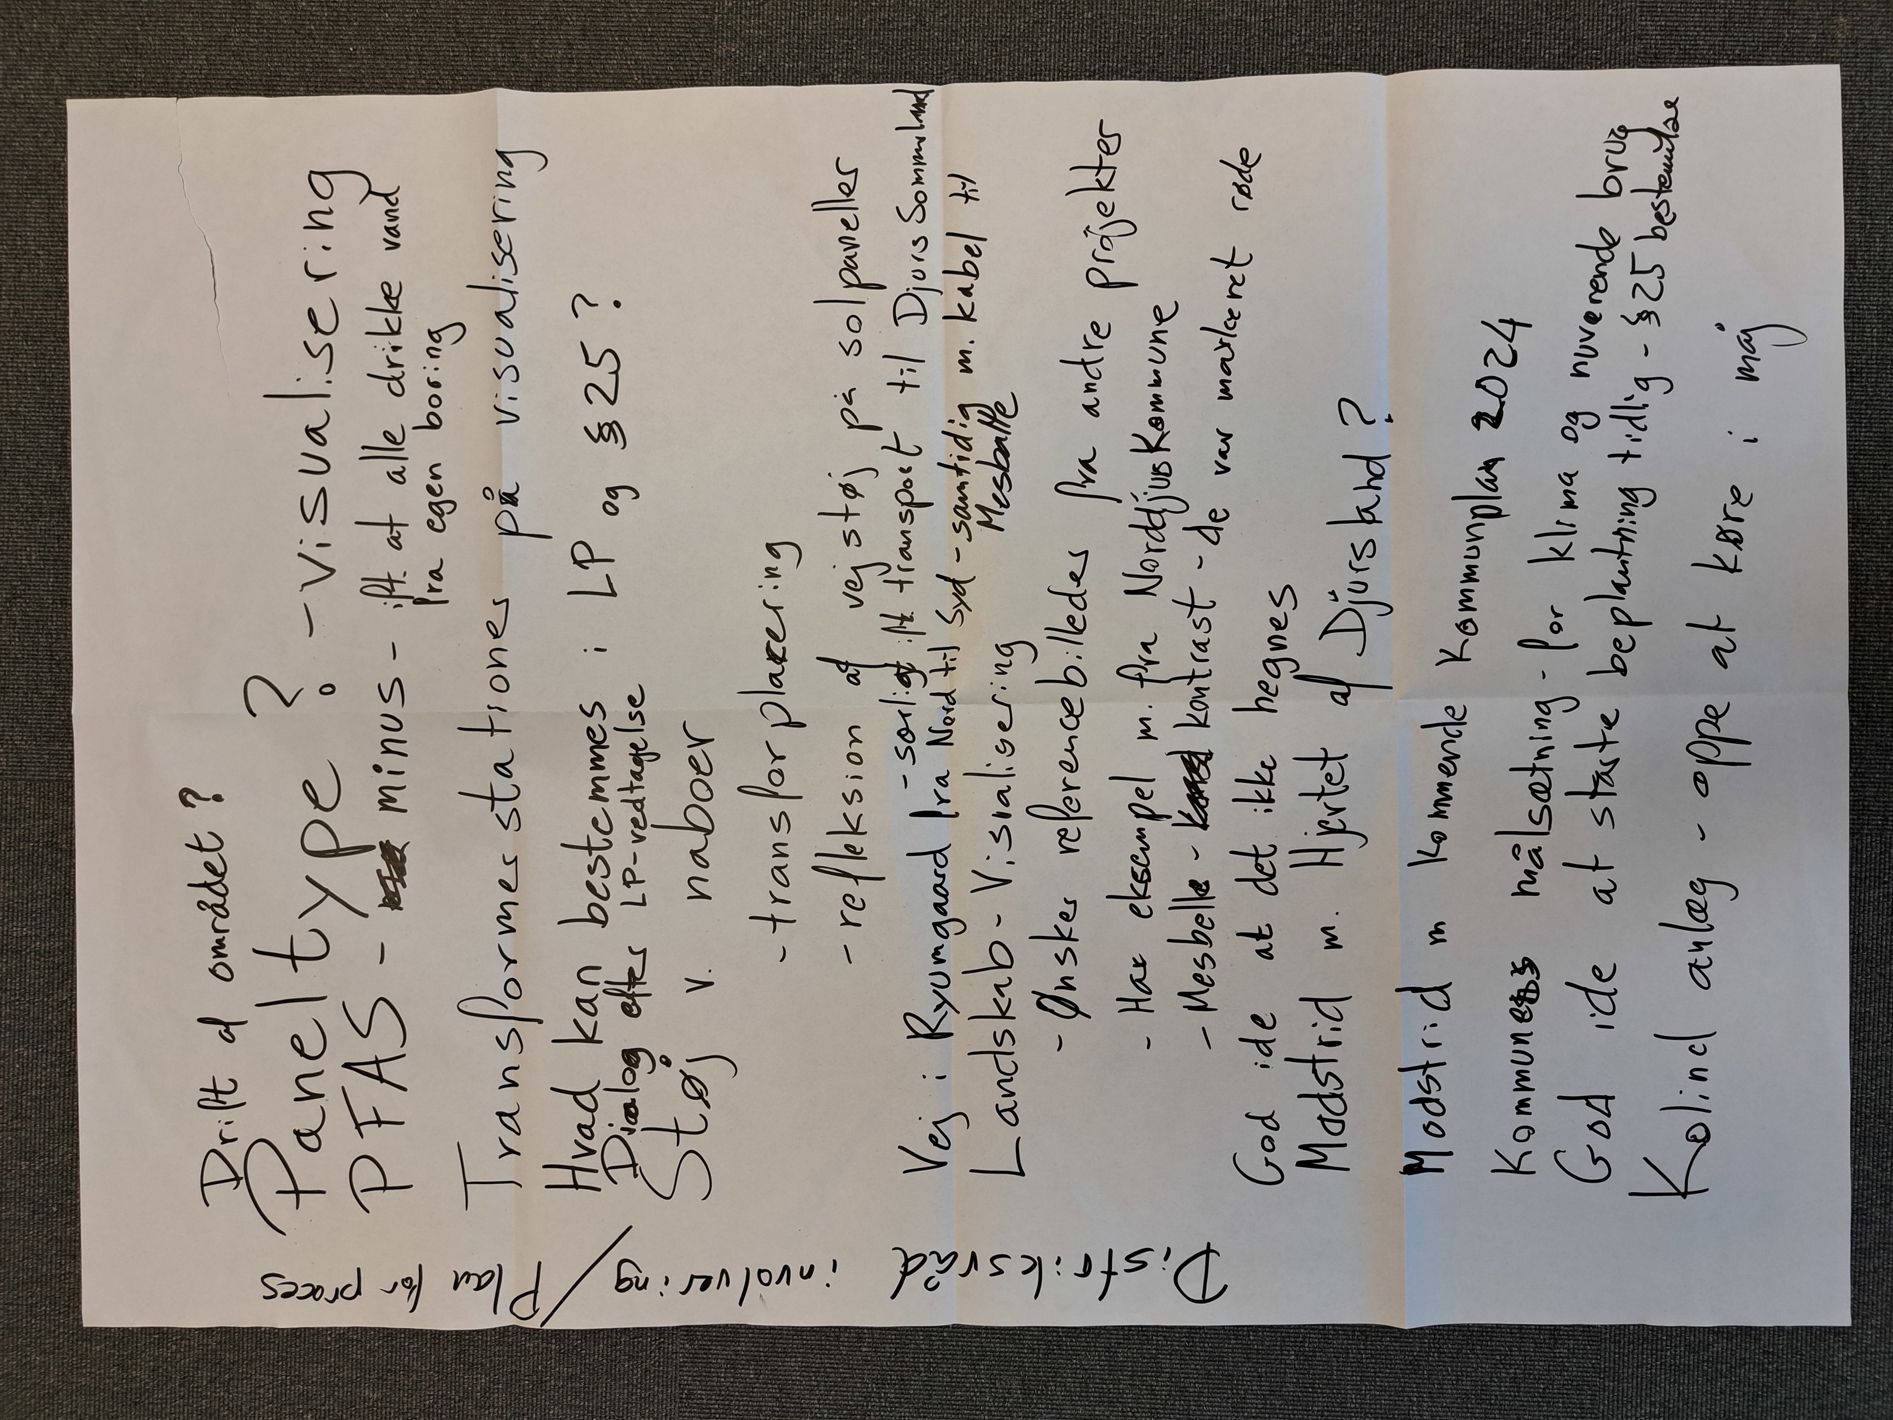 Drift af området?
Paneltype? - visualisering
PFAS - minus - ift. at alle drikke vand
fra egen boring
Transformerstationer på visualisering
Hvad kan bestemmes i LP og §25?
Dialog efter LP-vedtagelse
Støj v. naboer
- transforplacering
- refleksion af vejstøj på solpaneller
- særligt ift transport til Djurs Sommerland
Vej i Ryomgaard fra Nord til Syd - samtidig m. kabel til
Mesballe
Landskab - Visualisering
- Ønsker referencebilleder fra andre projekter
- Har eksempel m. fra Norddjurs Kommune
- Mesbelle - kontrast - de var markeret røde
God ide at det ikke hegnes
Modstrid m. Hjertet af Djursland?
Modstrid m kommende Kommunplan 2024
Kommunens målsætning - for klima og nuværende brug
God ide at starte beplantning tidlig - §25 bestemmelse
Kolind anlæg - oppe at køre i maj
Distriksråd involvering / Plan for proces